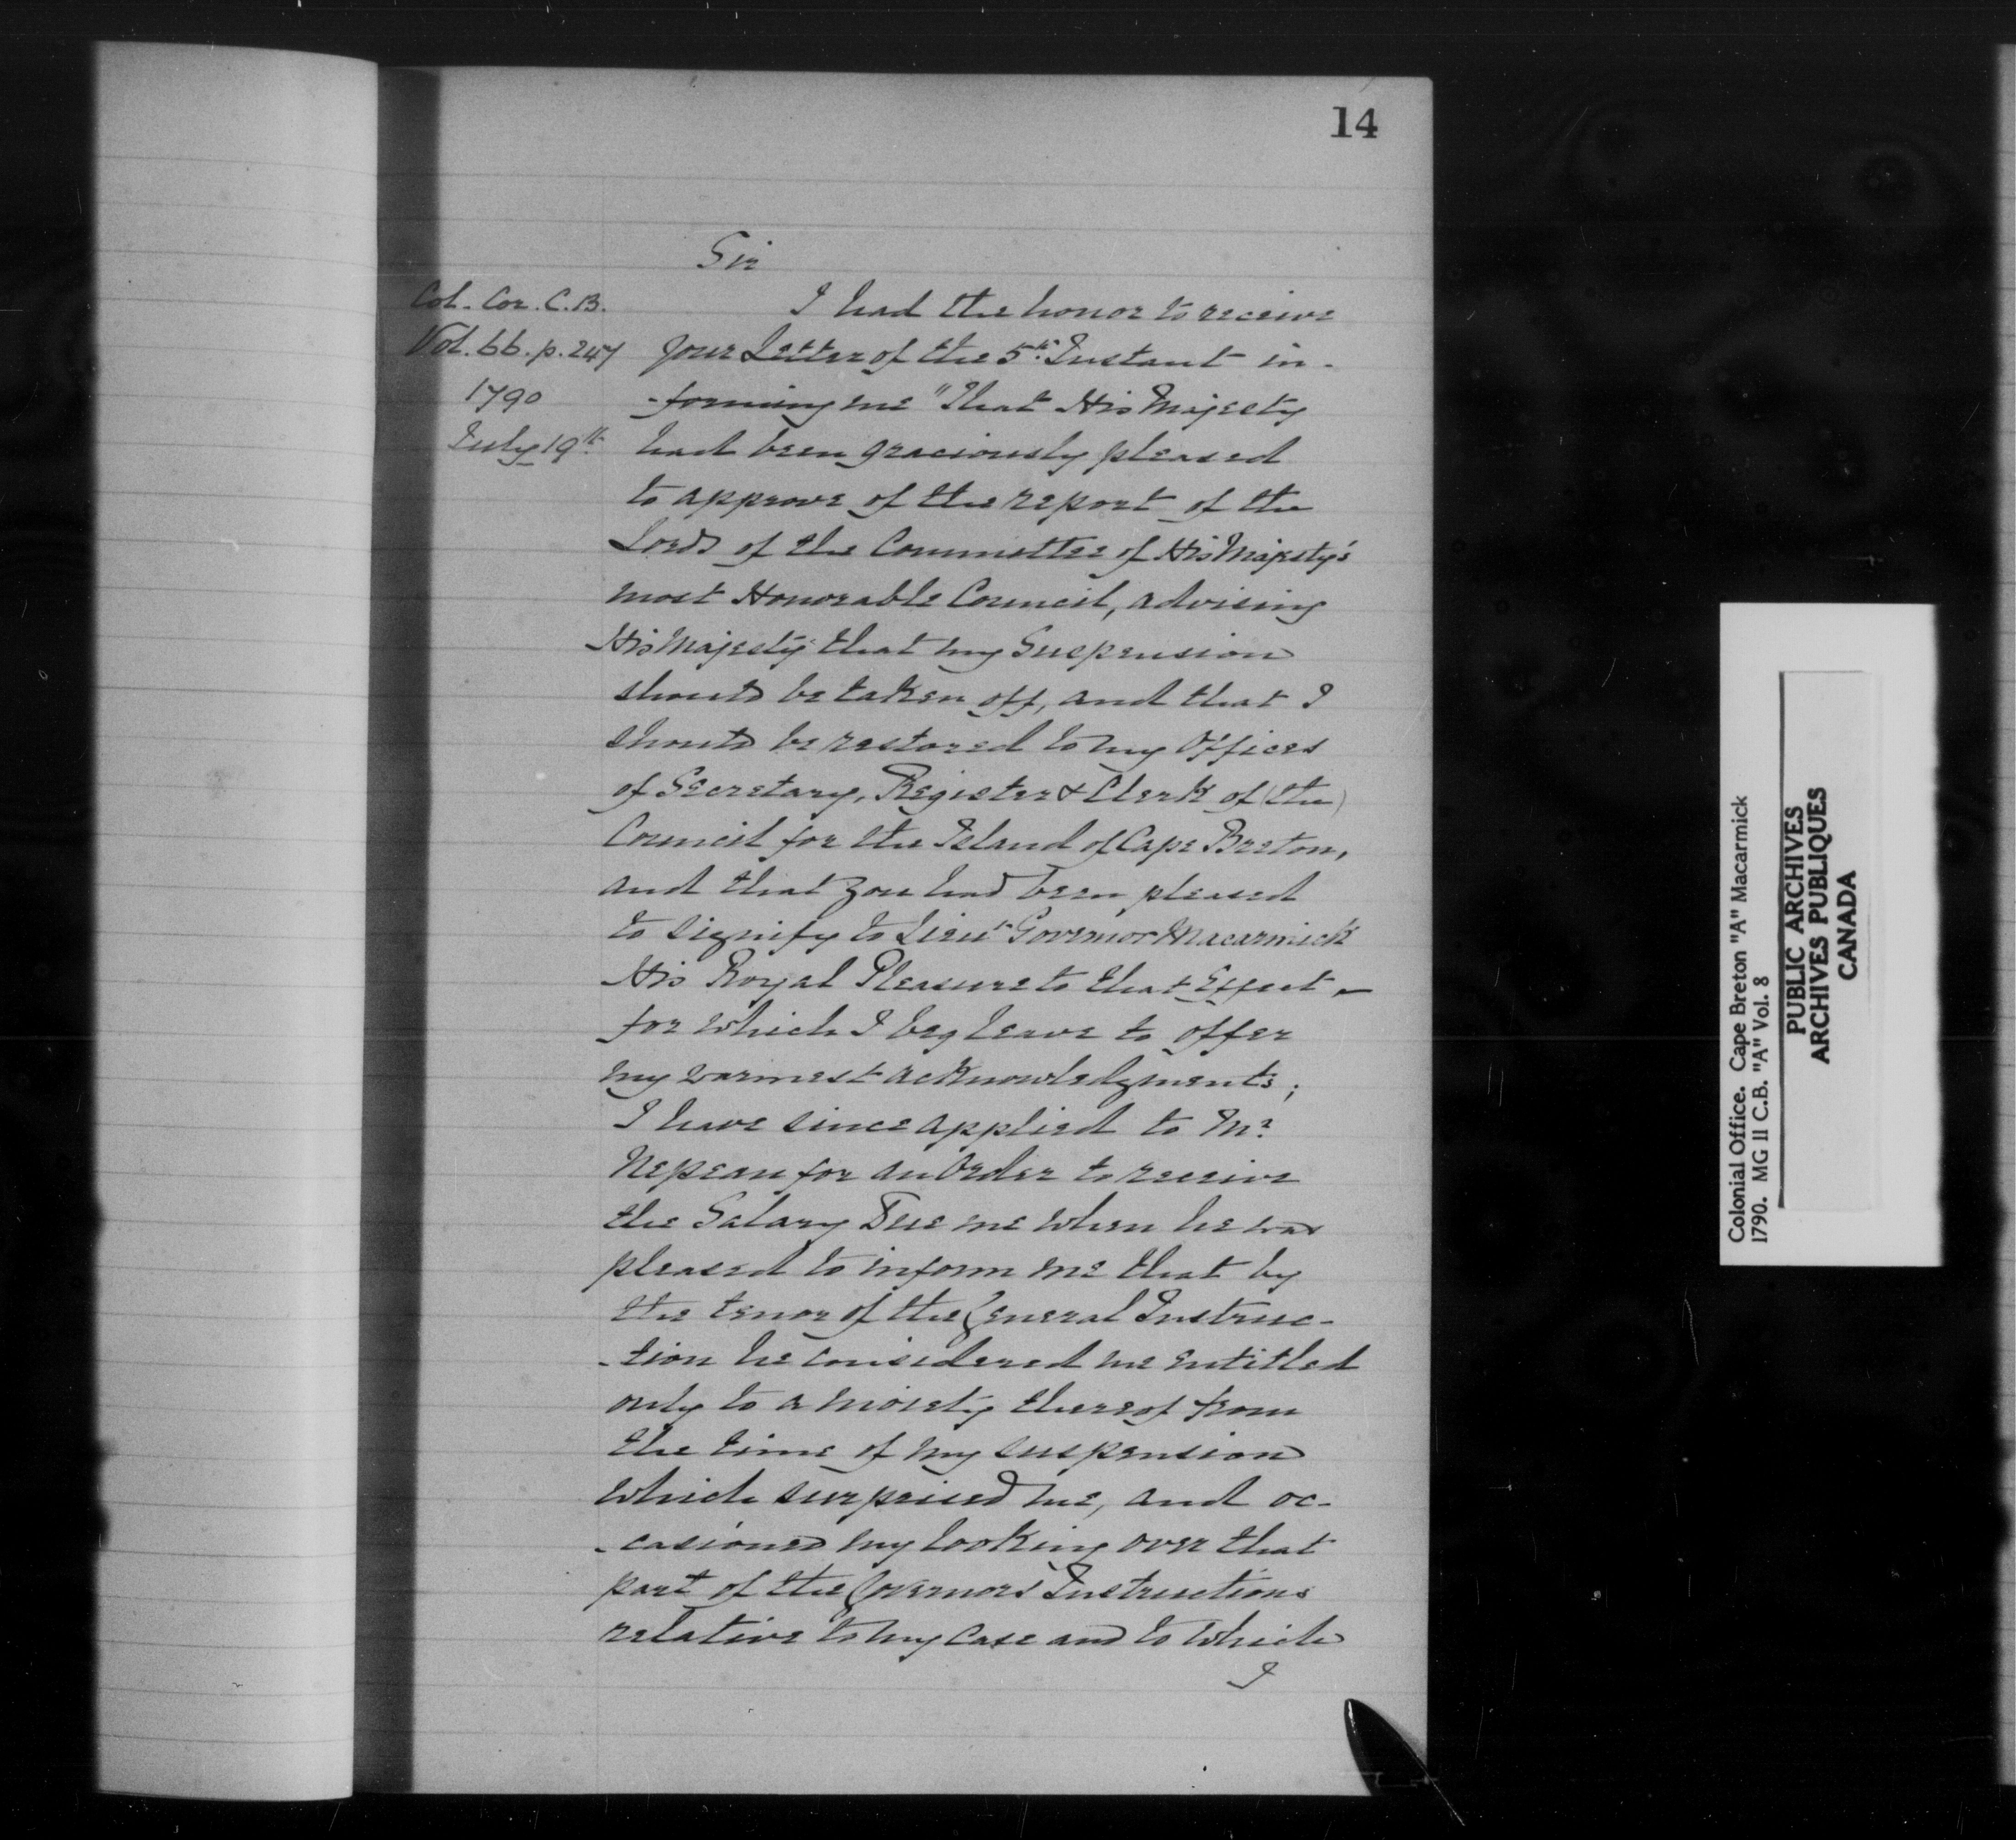 14
Col. Cor. C.B.
Vol. 66. p. 247
1790
July 19th
Sir
I had the honor to receive
your Letter of the 5th Instant in-
-forming me "That His Majesty
had been graciously pleased
to approve of the report of the
Lords of the Committee of His Majesty's
most Honorable Council, advising
His Majesty that my Suspension
should be taken off, and that I
should be restored to my Offices
of Secretary, Register & Clerk of (the)
Council for the Island of Cape Breton,
and that you had been pleased
to signify to Lieut Governor Macarmick
His Royal Pleasure to that Effect -
for which I beg leave to offer
my warmest acknowledgments;
I have since applied to Mr
Nepean for an Order to receive
the Salary Due me when he was
pleased to inform me that by
the tenor of the General Instruc-
-tion he considered me entitled
only to a moiety thereof from
the time of my suspension
which surprised me, and oc-
-casioned my looking over that
part of the Governors Instructions
relative to my Case and to which
I
Colonial Office. Cape Breton "A" Macarmick
1790. MG II C.B. "A" Vol. 8
PUBLIC ARCHIVES
ARCHIVES PUBLIQUES
CANADA